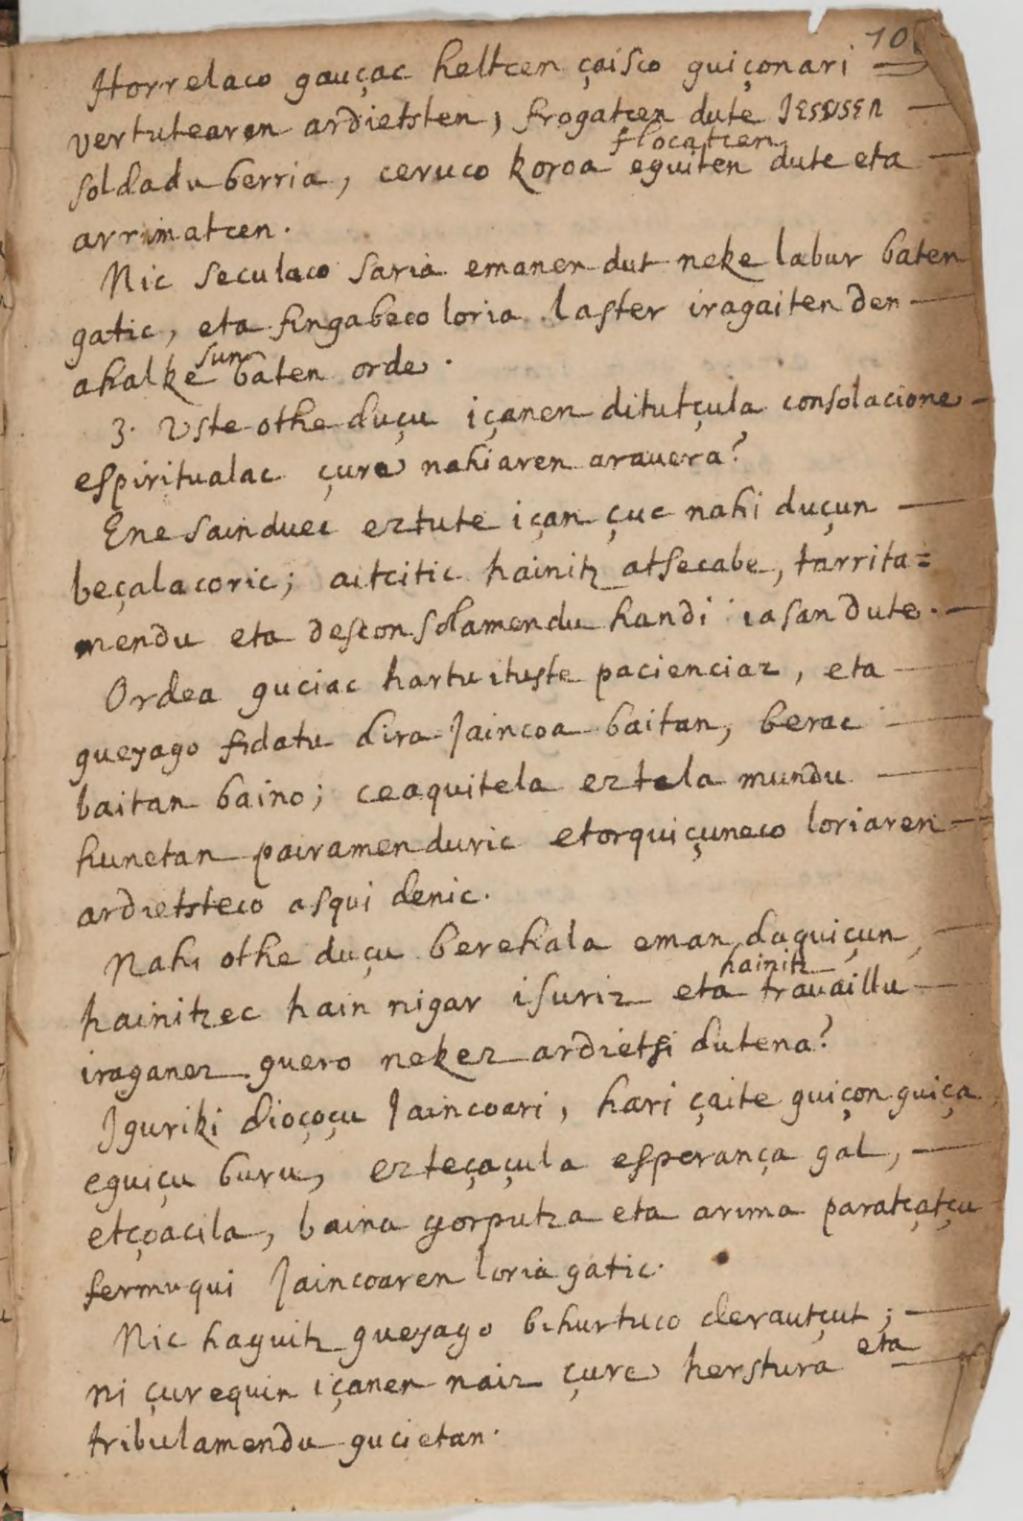 10
Horrelaco gauçac heltcen çaisco guiçonari
vertutearen ardietsten, frogatcen dute JESUSEN
flocatcen
soldadu berria, ceruco koroa eguiten dute eta
arrimatcen.
Nic seculaco saria emanen dut neke labur baten
gatic, eta fingabeco loria laster iragaiten den
sun
ahalke baten orde.
3. Uste othe duçu içanen ditutçula consolacione
espiritualac çure nahiaren arauera?
Ene sainduec eztute içan çuc nahi duçun
beçalacoric; aitcitic hainitz atsecabe, tarrita=
mendu eta desconsolamendu handi iasan dute.
Ordea guciac hartu ituste pacienciaz, eta
gueyago fidatu dira Jaincoa baitan, berac
baitan baino; ceaquitela eztela mundu
hunetan pairamenduric etorquiçuneco loriaren
ardietsteco asqui denic.
Nahi othe duçu berehala eman daquiçun,
hainitz
hainitzec hain nigar isuriz eta travaillu
iraganez guero nekez ardietsi dutena?
Iguriki dioçoçu Jaincoari, hari çaite guiçon guiça,
eguiçu buru, ezteçaçula esperança gal,
etçoacila, baina gorputza eta arima paratçatçu
fermuqui Jaincoaren loria gatic.
Nic haguitz gueyago bihurtuco derautçut;
ni çurequin içanen naiz çure herstura eta
tribulamendu gucietan.